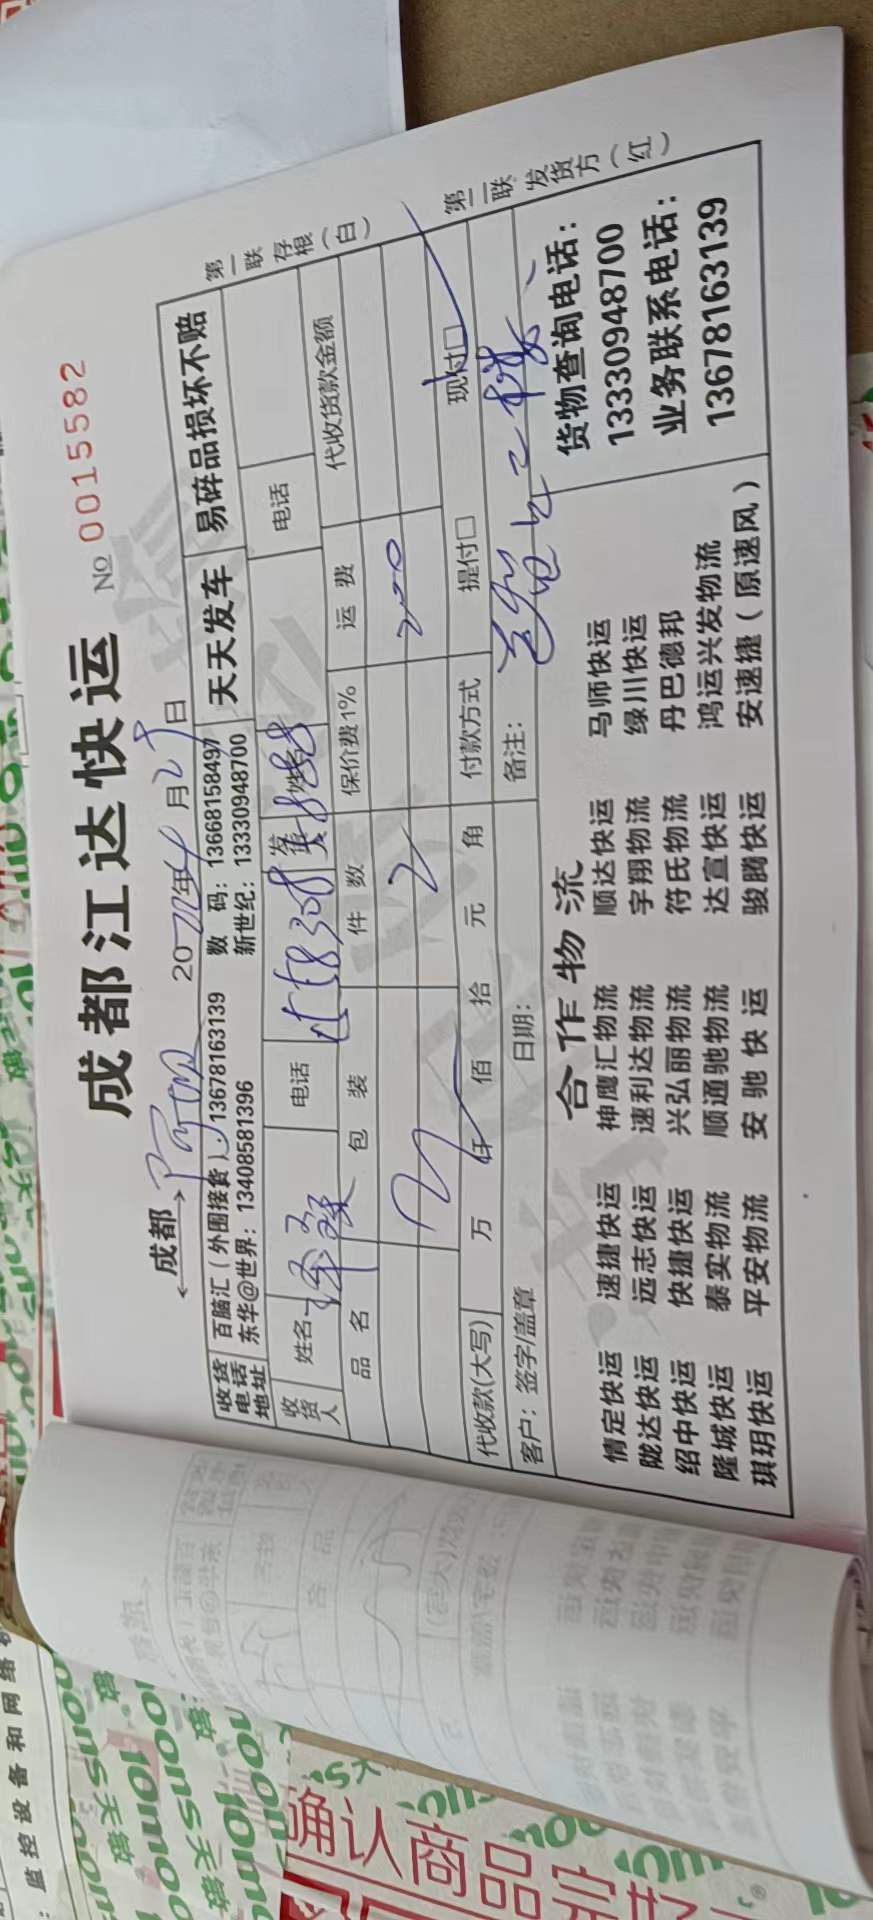 成都江达快运
№ 0015582
成都 阿坝 2022年4月29日
收货电话地址
百脑汇（外围接货）：13678163139
数 码：13668158497
东华@世界：13408581396
新世纪：13330948700
天天发车
易碎品损坏不赔
收货人 姓名 电话 发货 姓名 电话
品 名 包 装 件 数 保价费1% 运 费 代收货款金额
2 200
代收款(大写) 万 仟 佰 拾 元 角 付款方式 提付□ 现付□
客户：签字/盖章 日期： 备注：
合作物流
情定快运 速捷快运 神鹰汇物流 顺达快运 马师快运
陇达快运 远志快运 速利达物流 宇翔物流 绿川快运
绍中快运 快捷快运 兴弘丽物流 符氏物流 丹巴德邦
隆城快运 泰实物流 顺通驰物流 达宣快运 鸿运兴发物流
琪玥快运 平安物流 安驰快运 骏腾快运 安速捷（原速风）
货物查询电话：
13330948700
业务联系电话：
13678163139
第一联 存根（白）
第二联 发货方（红）
监控设备和网络
确认商品完好